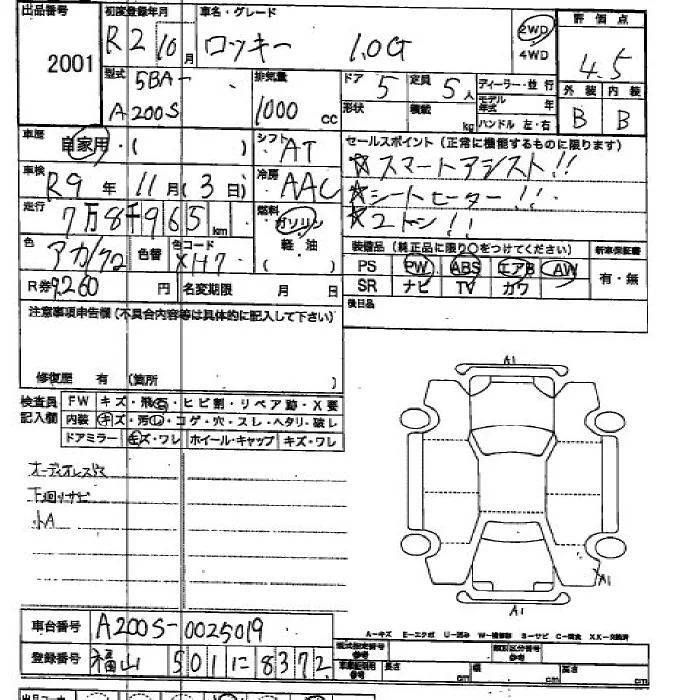 出品番号 2001
初度登録年月 R2 10月
車名・グレード ロッキー 1.0G
2WD
4WD
評価点 4.5
型式 5BA-
A200S
排気量 1000 cc
ドア 5
定員 5人
ディーラー・並行
モデル年式 年
ハンドル 左・右
形状
積載 kg
外装 内装
B B
車歴 自家用・( )
シフト AT
セールスポイント(正常に機能するものに限ります)
☆スマートアシスト!!
☆シートヒーター!!
☆2トーン!!
車検 R9年 11月(3日)
冷房 AAC
走行 7万8千965km
燃料 ガソリン
軽油
( )
色 アカ/クロ
色替
色コード XH7
装備品(純正品に限り○をつけてください)
新車保証書
PS PW ABS エアB AW
SR ナビ TV カワ
有・無
R券 9,260 円
名変期限 月 日
後日品
注意事項申告欄(不具合内容等は具体的に記入して下さい)
修復歴 有 (箇所 )
検査員記入欄
FW キズ・飛石・ヒビ割・リペア跡・X要
内装 キズ・汚レ・コゲ・穴・スレ・ヘタリ・破レ
ドアミラー キズ・ワレ ホイール・キャップ キズ・ワレ
オーディオレス
下回りサビ
小A
A1
A1
A1
A-キズ E-エクボ U-凹み W-補修跡 S-サビ C-腐食 XX-交換済
車台番号 A200S-0025019
登録番号 福山 501 に 8372
型式指定番号 参考
類別区分番号 参考
長さ cm
幅 cm
高さ cm